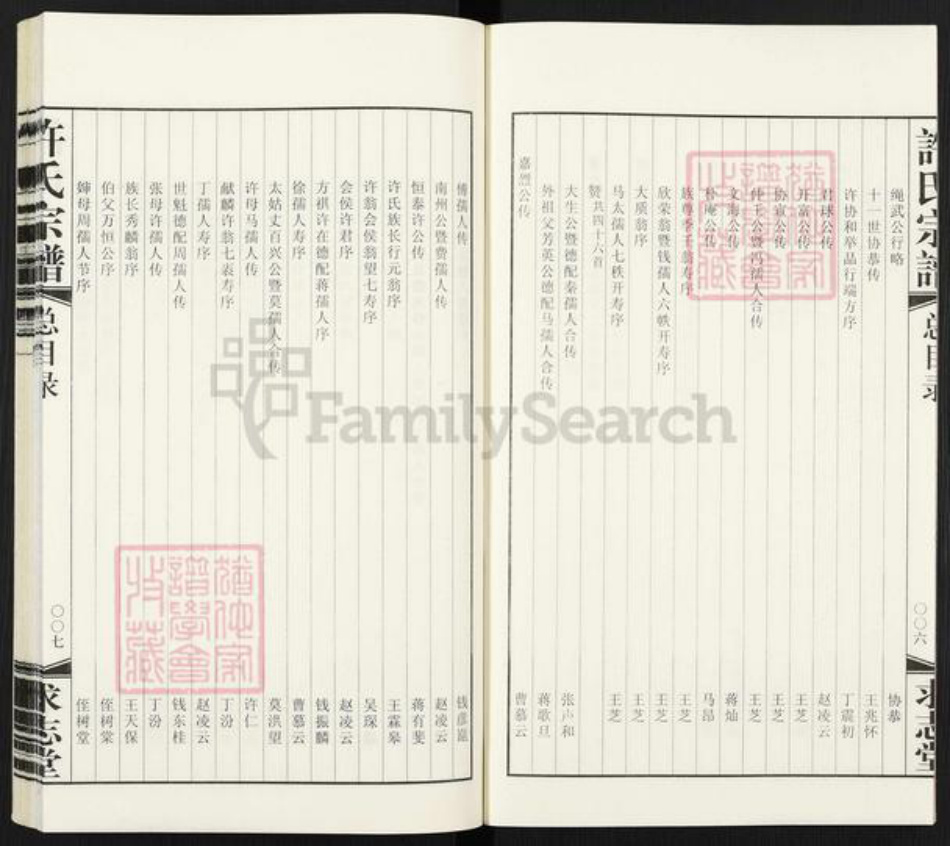 許氏宗譜
总目录
〇〇六
求志堂
绳武公行略 协恭
十一世协恭传 王兆怀
许协和举品行端方序 丁震初
君球公传 赵凌云
开富公传 王芝
协宣公传 王芝
仲玉公暨冯孺人合传 王芝
文海公传 蒋灿
朴庵公传 马昂
族尊季壬翁寿序 王芝
欣荣翁暨钱孺人六帙开寿序 王芝
大质翁序 王芝
马太孺人七秩开寿序 王芝
赞共四十六首
大生公暨德配秦孺人合传 张声和
外祖父芳英公德配马孺人合传 蒋歌旦
嘉烈公传 曹慕云
傅孺人传 钱彦崑
南州公暨费孺人传 赵凌云
恒泰许公传 蒋有斐
许氏族长行元翁序 王霖皋
许翁会侯翁望七寿序 吴琛
会侯许君序 赵凌云
方祺许在德配蒋孺人序 钱振麟
徐孺人寿序 曹慕云
太姑丈百兴公暨莫孺人合传 莫洪望
许母马孺人传 许仁
献麟许翁七袠寿序 丁汾
丁孺人寿序 赵凌云
世魁德配周孺人传 钱东桂
张母许孺人传 丁汾
族长秀麟翁序 王天保
伯父万恒公序 侄树棠
婶母周孺人节序 侄树堂
许氏宗谱
总目录
〇〇七
求志堂
FamilySearch